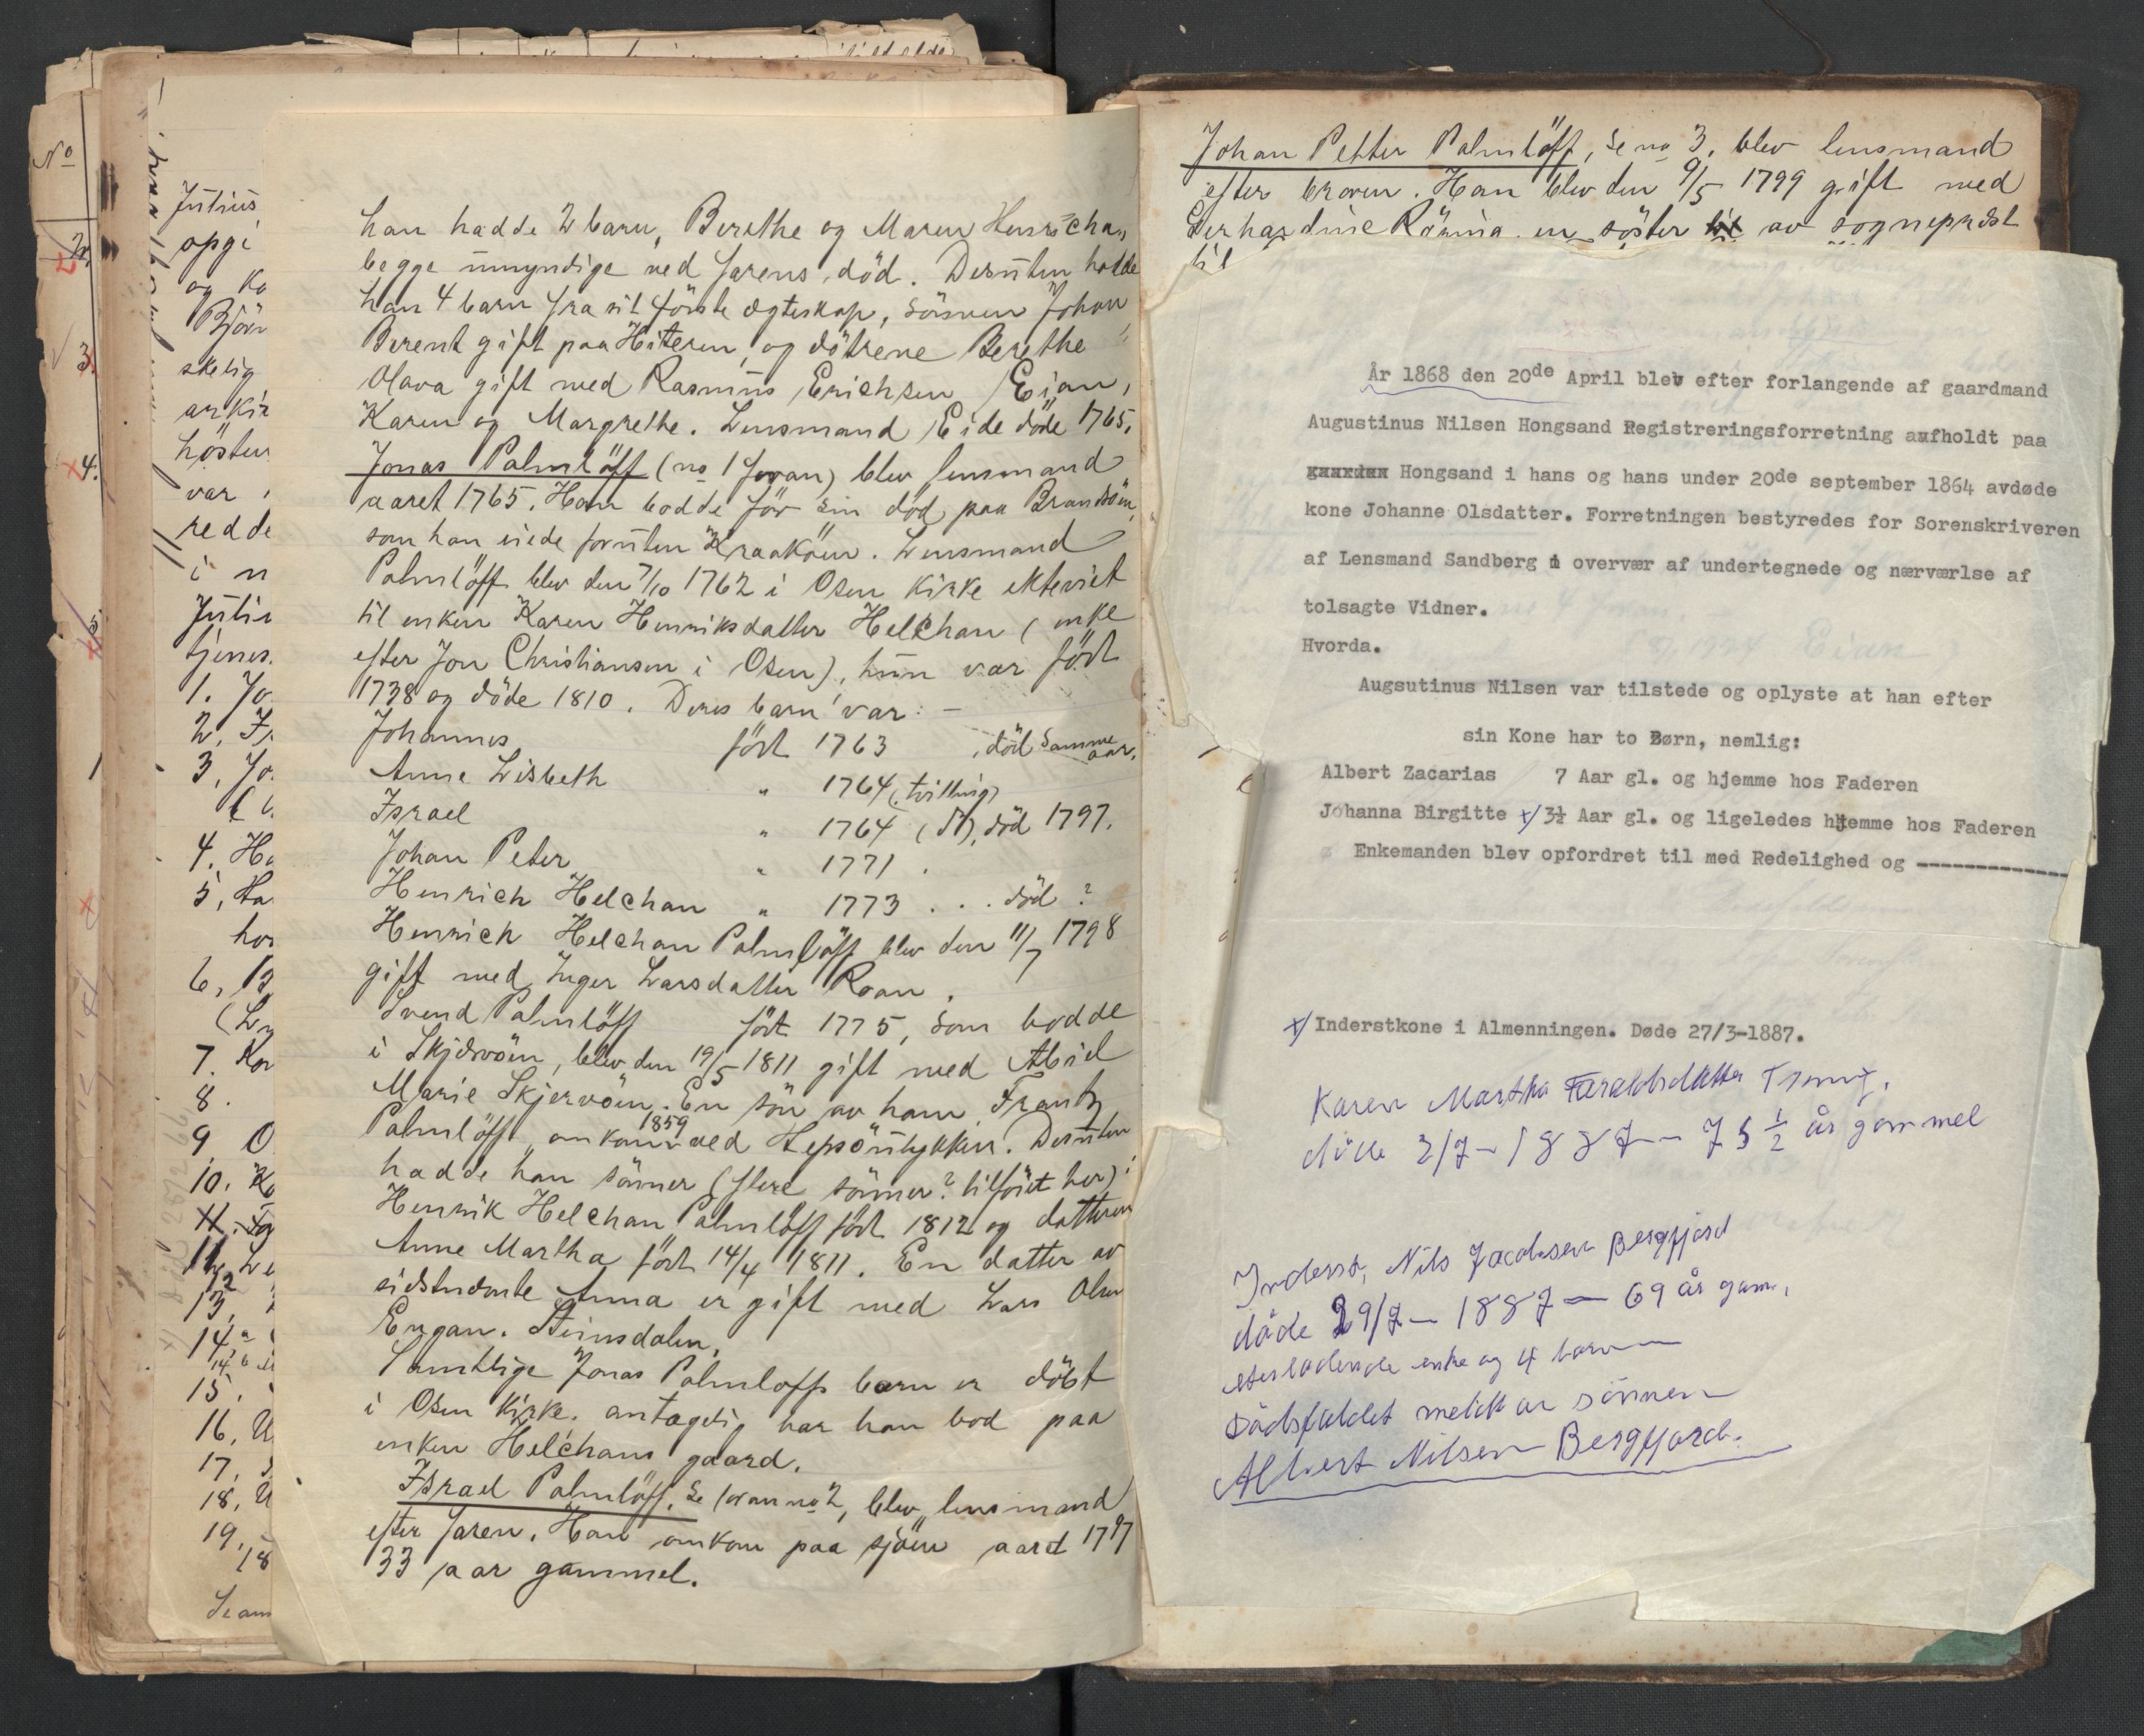 No
2.
3.
4.
5
Julius
opgi
og ko
Björ
skelig
arkir
hösten
var
redde
i n
Juliu
tjenes.
1. Jo
2.
3, Jo
4. Ha
5, Ha
hos
6, B
7. Kar
8.
9, O
10. K
11.
12
13,
14a
14b
15.
16, U
17,
18, U
19,
18
han hadde 2 barn, Berethe og Maren Henricha,
begge umyndige ved farens död. Desuten hadde
han 4 barn fra sit förste ægteskap, sönnen Johan
Berent gift paa Hiteren, og dötrene Berethe
Olava gift med Rasmus Erichsen Eian,
Karen og Margrethe. Lensmand Eide döde 1765.
Jonas Palmlöff (no 1 foran) blev lensmand
aaret 1765. Han bodde för sin död paa Brandsöen,
som han eiede foruten Kraaköen. Lensmand
Palmlöff blev den 7/10 1762 i Osen kirke ekteviet
til enken Karen Henriksdatter Helchan (enke
efter Jon Christiansen i Osen), hun var födt
1738 og döde 1810. Deres barn var: -
Johannes födt 1763 , död samme aar.
Anne Lisbeth " 1764 (tvilling)
Israel " 1764 (do), död 1797.
Johan Peter " 1771 .
Henrich Helchan " 1773 . . . död ?
Henrich Helchan Palmlöff blev den 11/7 1798
gift med Inger Larsdatter Roan.
Svend Palmlöff födt 1775, som bodde
i Skjervöen, blev den 19/5 1811 gift med Abiel
Marie Skjervöen. En sön av ham, Frantz
Palmlöff, omkom 1859 ved Hepsöulykken. Desuten
hadde han sönner (flere sönner? tilföiet her):
Henrik Helchan Palmlöff födt 1812 og datteren
Anne Martha födt 14/4 1811. En datter av
sidstnævnte Anna er gift med Lars Olsen
Engan. Steinsdalen.
Samtlige Jonas Palmloffs barn er döbt
i Osen kirke. antagelig har han bod paa
enken Helchans gaard.
Israel Palmlöff. Se foran no 2, blev lensmand
efter faren. Han omkom paa sjöen aaret 1797
33 aar gammel.
Johan Petter Palmlöff, se no 3, blev lensmand
efter broren. Han blev den 9/5 1799 gift med
Gerhardine en söster av sogneprest
til
År 1868 den 20de April blev efter forlangende af gaardmand
Augustinus Nilsen Hongsand Registreringsforretning aufholdt paa
gaarden Hongsand i hans og hans under 20de september 1864 avdøde
kone Johanne Olsdatter. Forretningen bestyredes for Sorenskriveren
af Lensmand Sandberg i overvær af undertegnede og nærværlse af
tolsagte Vidner.
Hvorda.
Augsutinus Nilsen var tilstede og oplyste at han efter
sin Kone har to Børn, nemlig:
Albert Zacarias 7 Aar gl. og hjemme hos Faderen
Johanna Birgitte x/ 3½ Aar gl. og ligeledes hjemme hos Faderen
Enkemanden blev opfordret til med Redelighed og ----------------
x/ Inderstkone i Almenningen. Døde 27/3-1887.
Karen Martha
döde 2/7 - 1887 - 75 1/2 år gammel
Inderst, Nils Jacobsen Bergfjord
döde 29/7 - 1887 - 69 år gam.
efterladende enke og 4 barn
Dödsfaldet meldt av sönnen
Albert Nilsen Bergfjord.